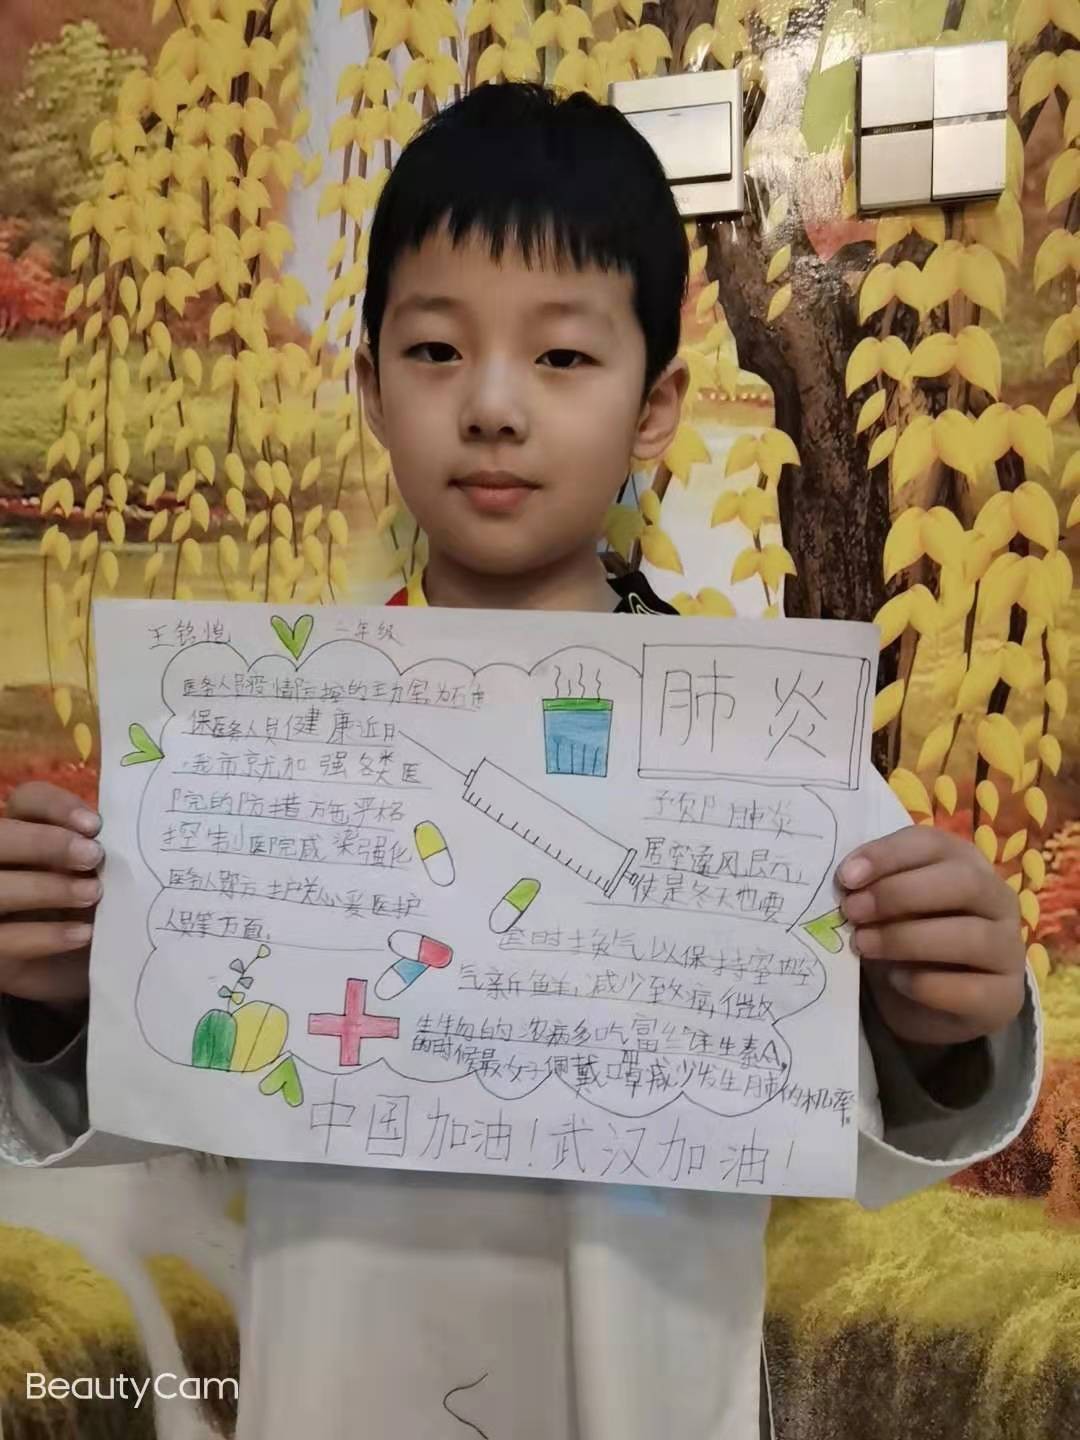 王铭恺
二年级
医务人员疫情防控的主力军,为石也
保医务人员健康近日
,我市就加强各类医
院的防措施严格
控制医院感染强化
医务人员防护关心爱医护
人员等方面。
肺炎
预防肺炎
居室通风,
使是冬天也要
定时换气以保持室内空
气新鲜,减少致病微
生物的
多吃富
维生素A,
的时候最好佩戴口罩减少发生肺的机率。
中国加油!武汉加油!
BeautyCam